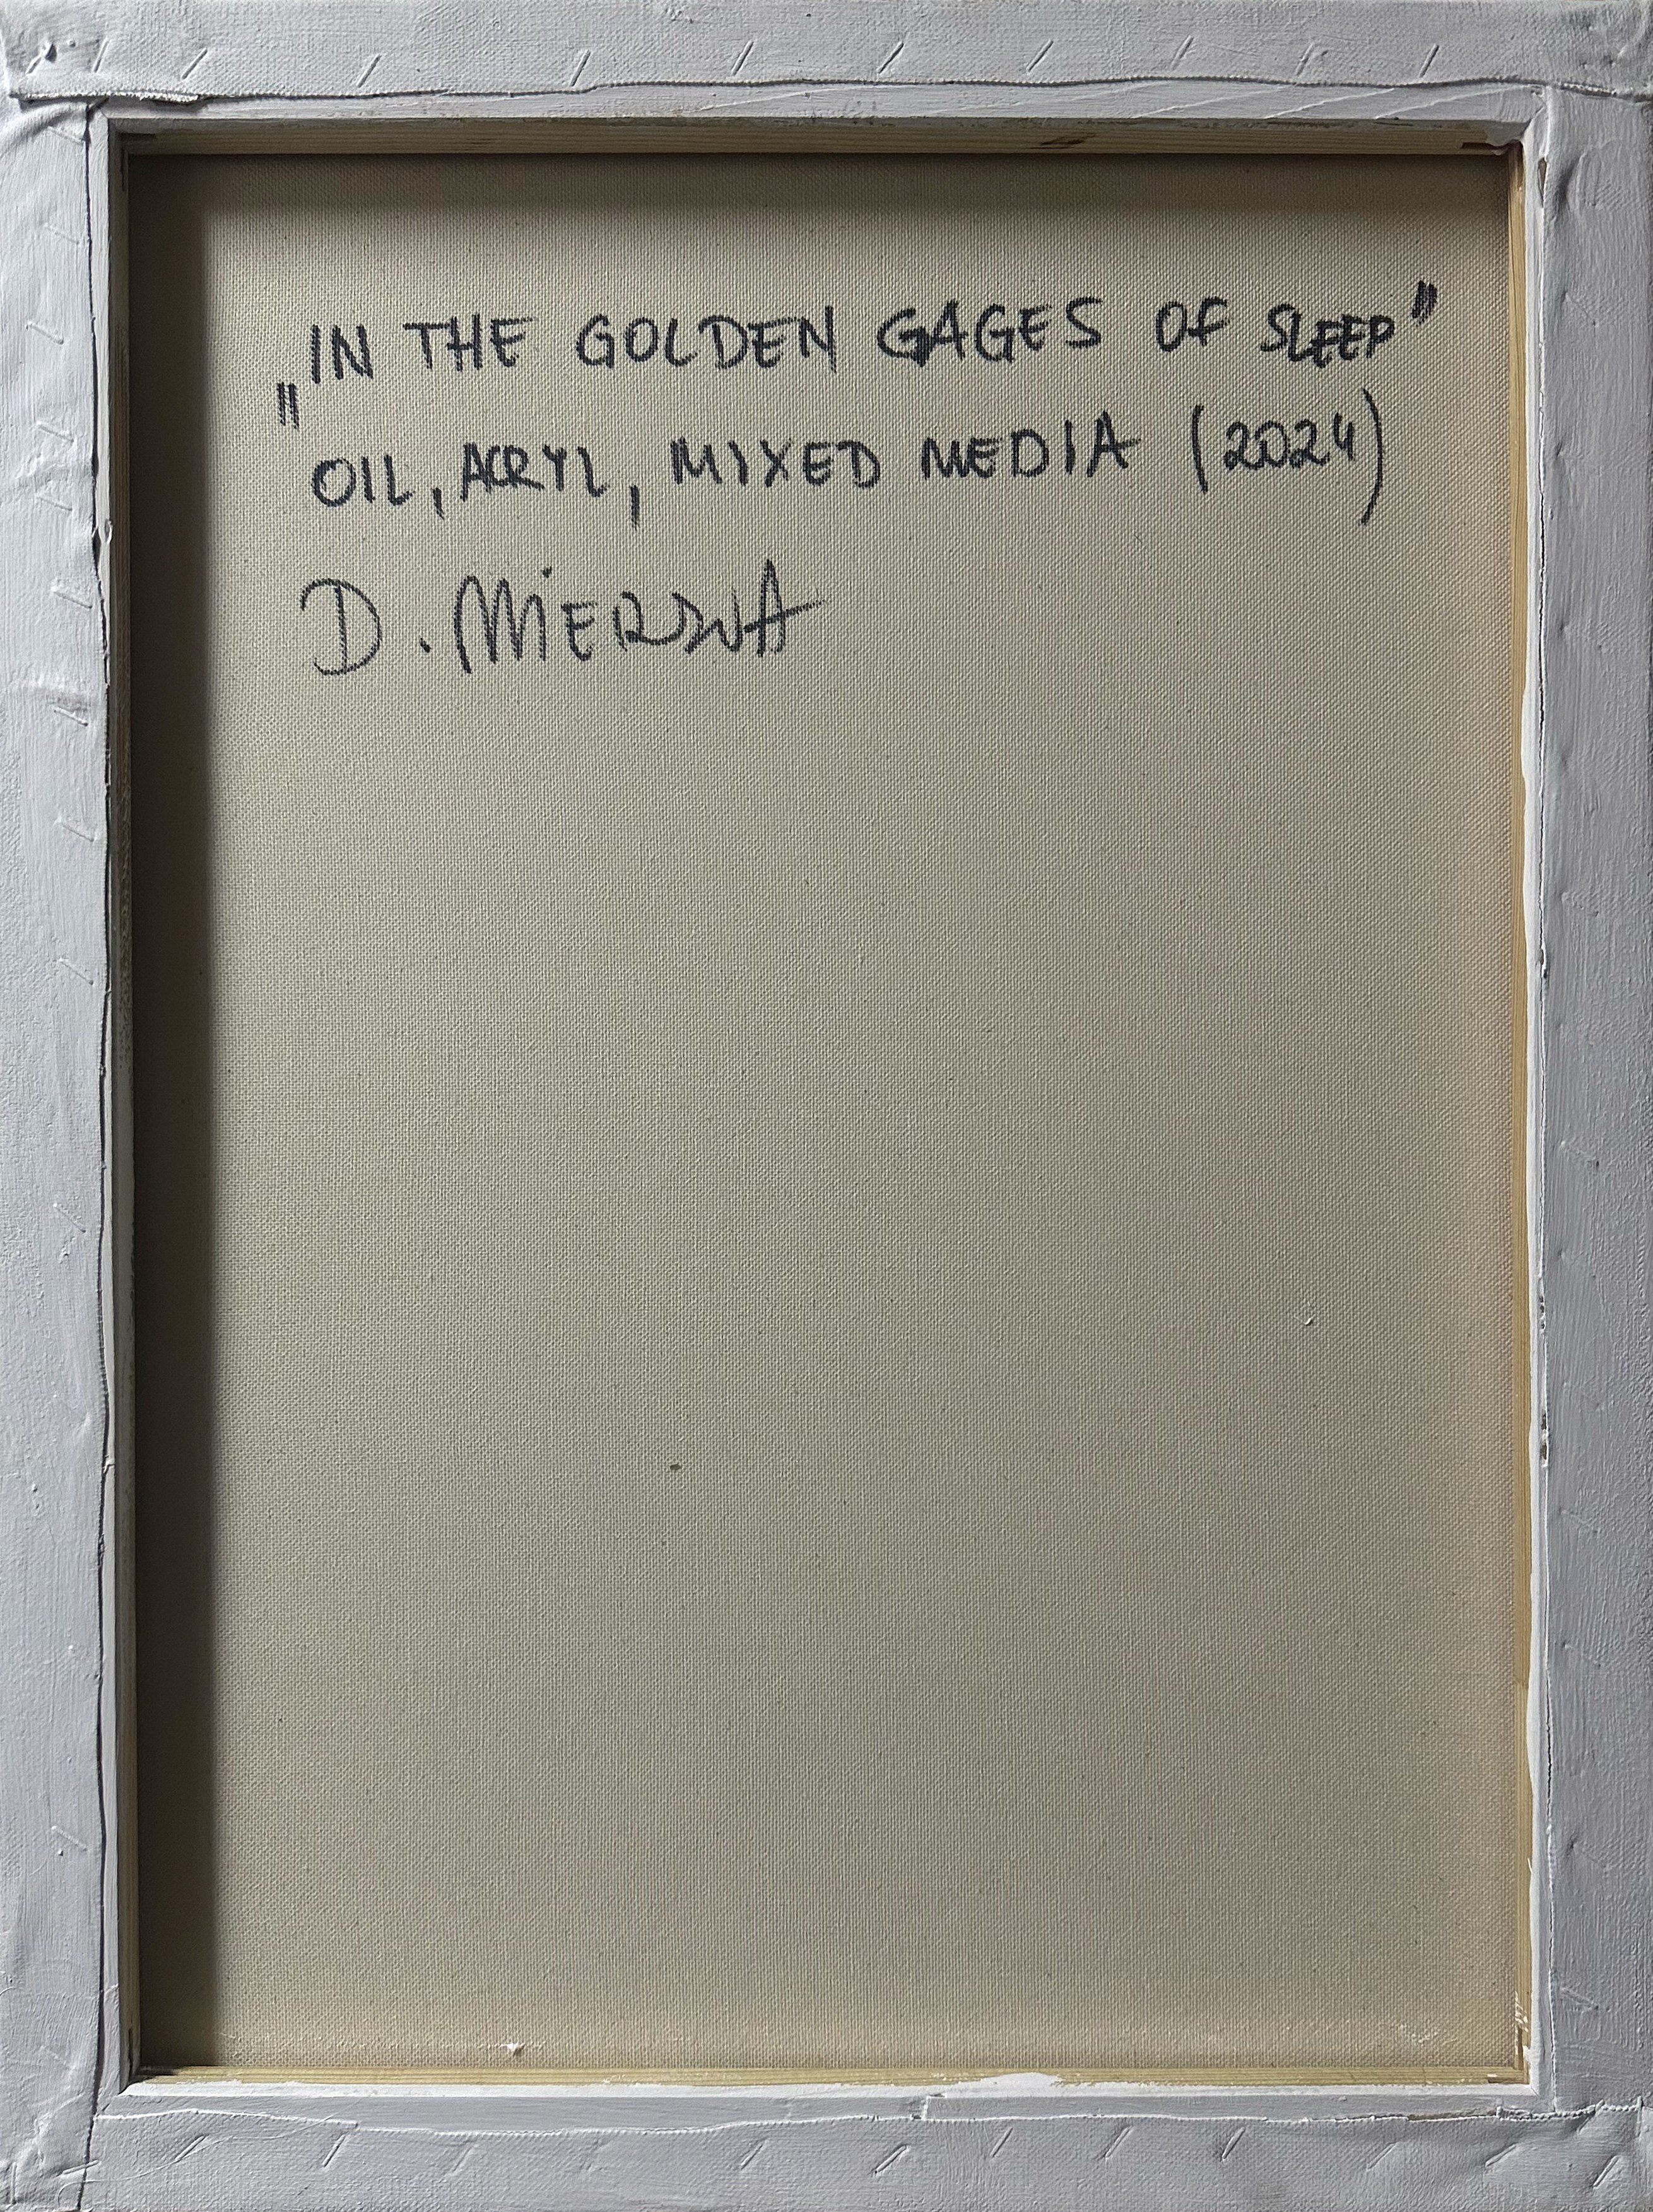 „IN THE GOLDEN GAGES OF SLEEP"
OIL, ACRYL, MIXED MEDIA (2024)
D.